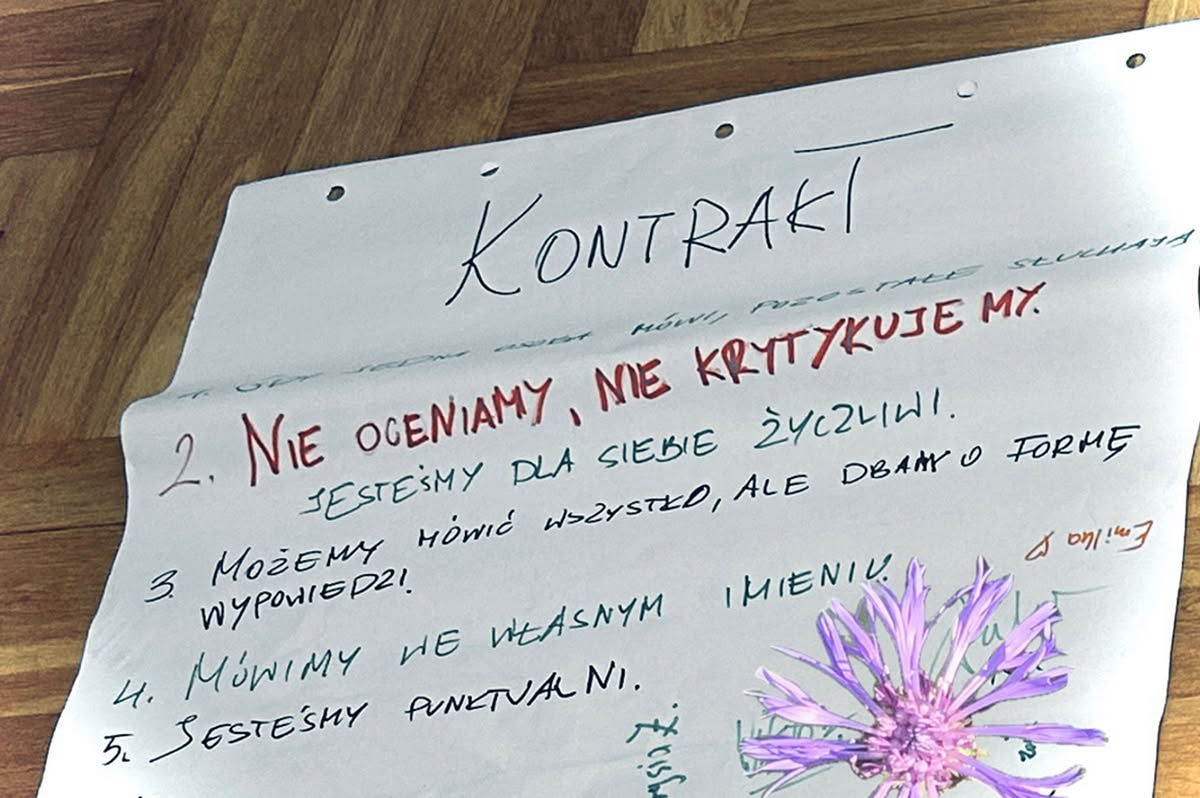 KONTRAKT
1. GDY JEDNA OSOBA MÓWI, POZOSTAŁE SŁUCHAJĄ
2. NIE OCENIAMY, NIE KRYTYKUJEMY.
JESTEŚMY DLA SIEBIE ŻYCZLIWI.
3. MOŻEMY MÓWIĆ WSZYSTKO, ALE DBAMY O FORMĘ
WYPOWIEDZI.
4. MÓWIMY WE WŁASNYM IMIENIU.
5. JESTEŚMY PUNKTUALNI.
Emilka